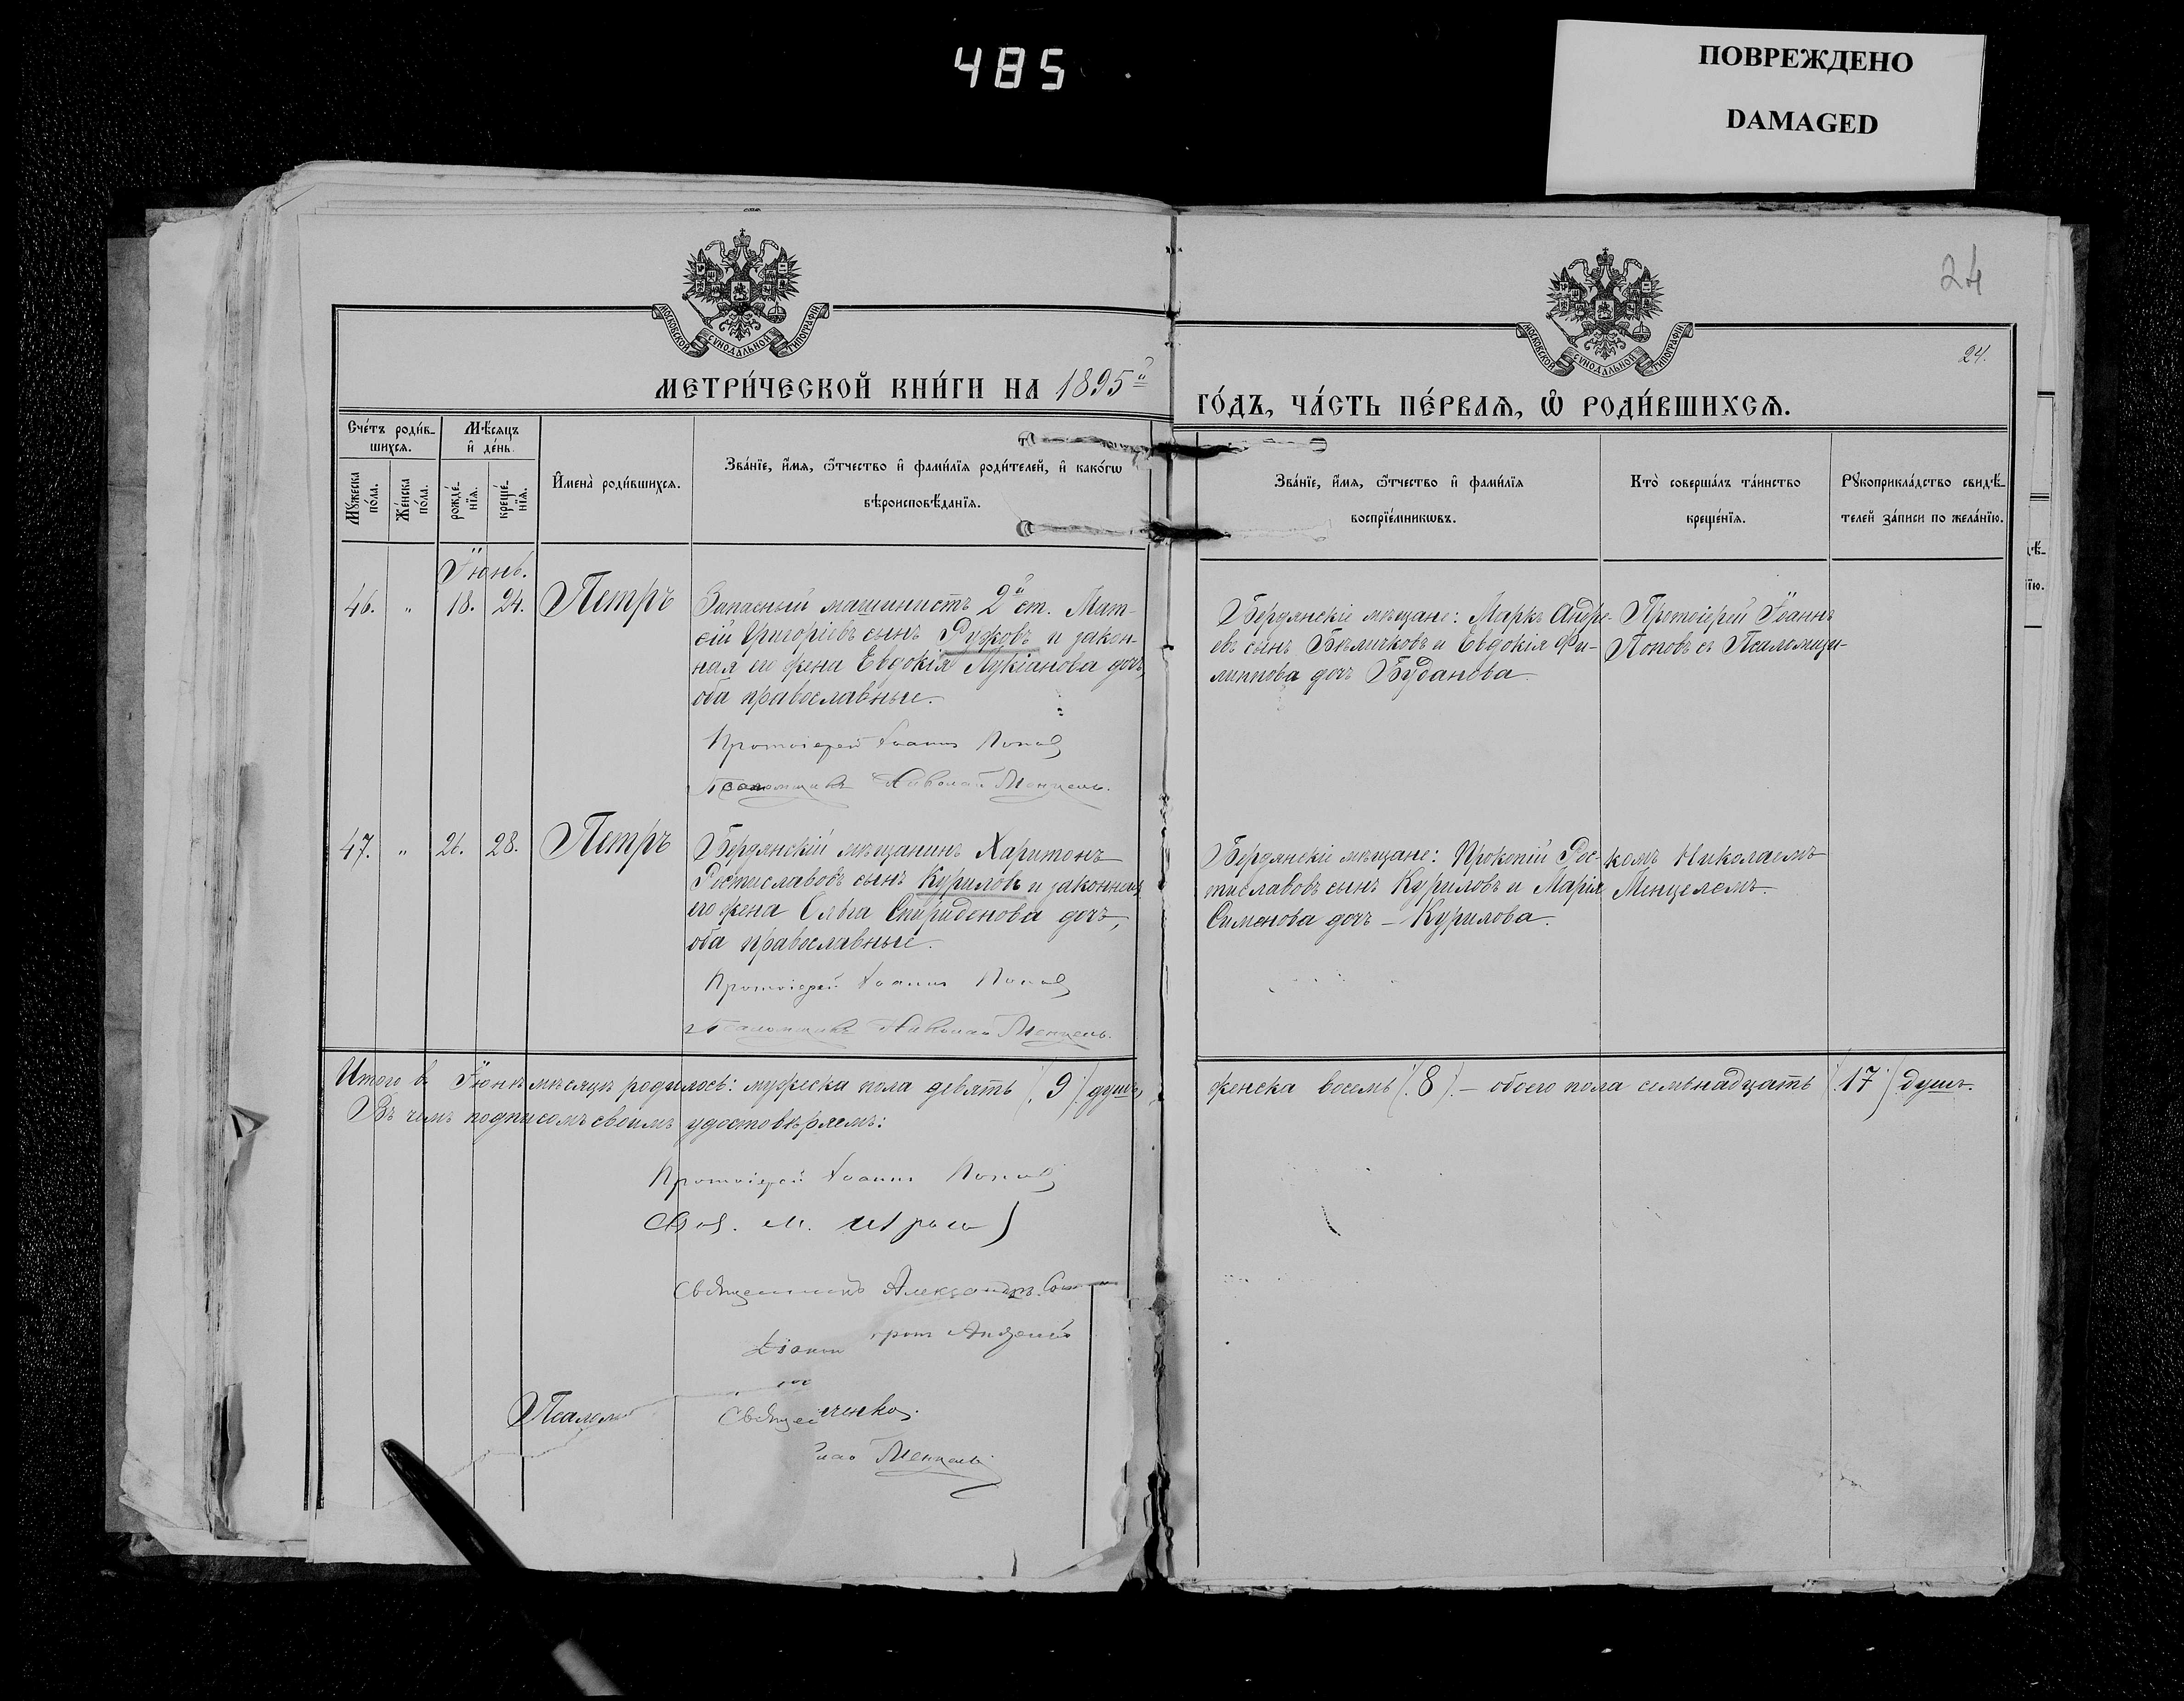 485
ПОВРЕЖДЕНО
DAMAGED
24
МОСКОВСКОЙ СУНОДАЛЬНОЙ ТИПОГРАФІИ
МОСКОВСКОЙ СУНОДАЛЬНОЙ ТИПОГРАФІИ
24.
МЕТРИ́ЧЕСКОЙ КНИ́ГИ НА 1895й
ГО́ДЪ, ЧА́СТЬ ПЕ́РВАѦ, Ѡ҆ РОДИ́ВШИХСѦ.
Сче́тъ роди́в-
шихсѧ.
Мꙋжеска по́ла.
Же́нска по́ла.
Мѣ́сѧцъ
и҆ де́нь.
рожде́-
нїѧ.
креще́-
нїѧ.
И҆мена̀ роди́вшихсѧ.
Зва́нїе, и҆́мѧ, ѻ҆́тчество и҆ фами́лїѧ роди́телей, и҆ како́гѡ
вѣроисповѣ́данїѧ.
Зва́нїе, и҆́мѧ, ѻ҆́тчество и҆ фами́лїѧ
воспрїе́мникѡвъ.
Кто̀ соверша́лъ та́инство
креще́нїѧ.
Рꙋкоприкла́дство свидѣ́-
телей за́писи по жела́нїю.
Іюнь.
46. " 18. 24. Петръ
Запасный машинистъ 2й ст. Мат-
ѳій Григоріевъ сынъ Рузковъ и закон-
ная его жена Евдокія Лукіанова дочь,
оба православные.
Протоіерей Іоаннъ Поповъ
Псаломщикъ Николай Менцель.
Бердянскіе мѣщане: Маркъ Андре-
евъ сынъ Бѣличковъ и Евдокія Фи-
липпова дочь Буданова.
Протоіерей Іоаннъ
Поповъ съ Псаломщи-
47. " 26. 28. Петръ
Бердянскій мѣщанинъ Харитонъ
Ростиславовъ сынъ Куриловъ и законная
его жена Ольга Спиридонова дочь,
оба православные.
Протоіерей Іоаннъ Поповъ
Псаломщикъ Николай Менцель.
Бердянскіе мѣщане: Прокопій Рос-
тиславовъ сынъ Куриловъ и Марія
Симонова дочь – Курилова.
комъ Николаемъ
Менцелемъ.
Итого въ Іюнѣ мѣсяцѣ родилось: мужеска пола девять (9) душъ,
женска восемь (8) – обоего пола семьнадцать (17) душъ.
Въ чемъ подписомъ своимъ удостовѣряемъ:
Протоіерей Іоаннъ Поповъ
Священникъ Александръ
Діаконъ
Псалом
Священ
ченко.
лай Менцель